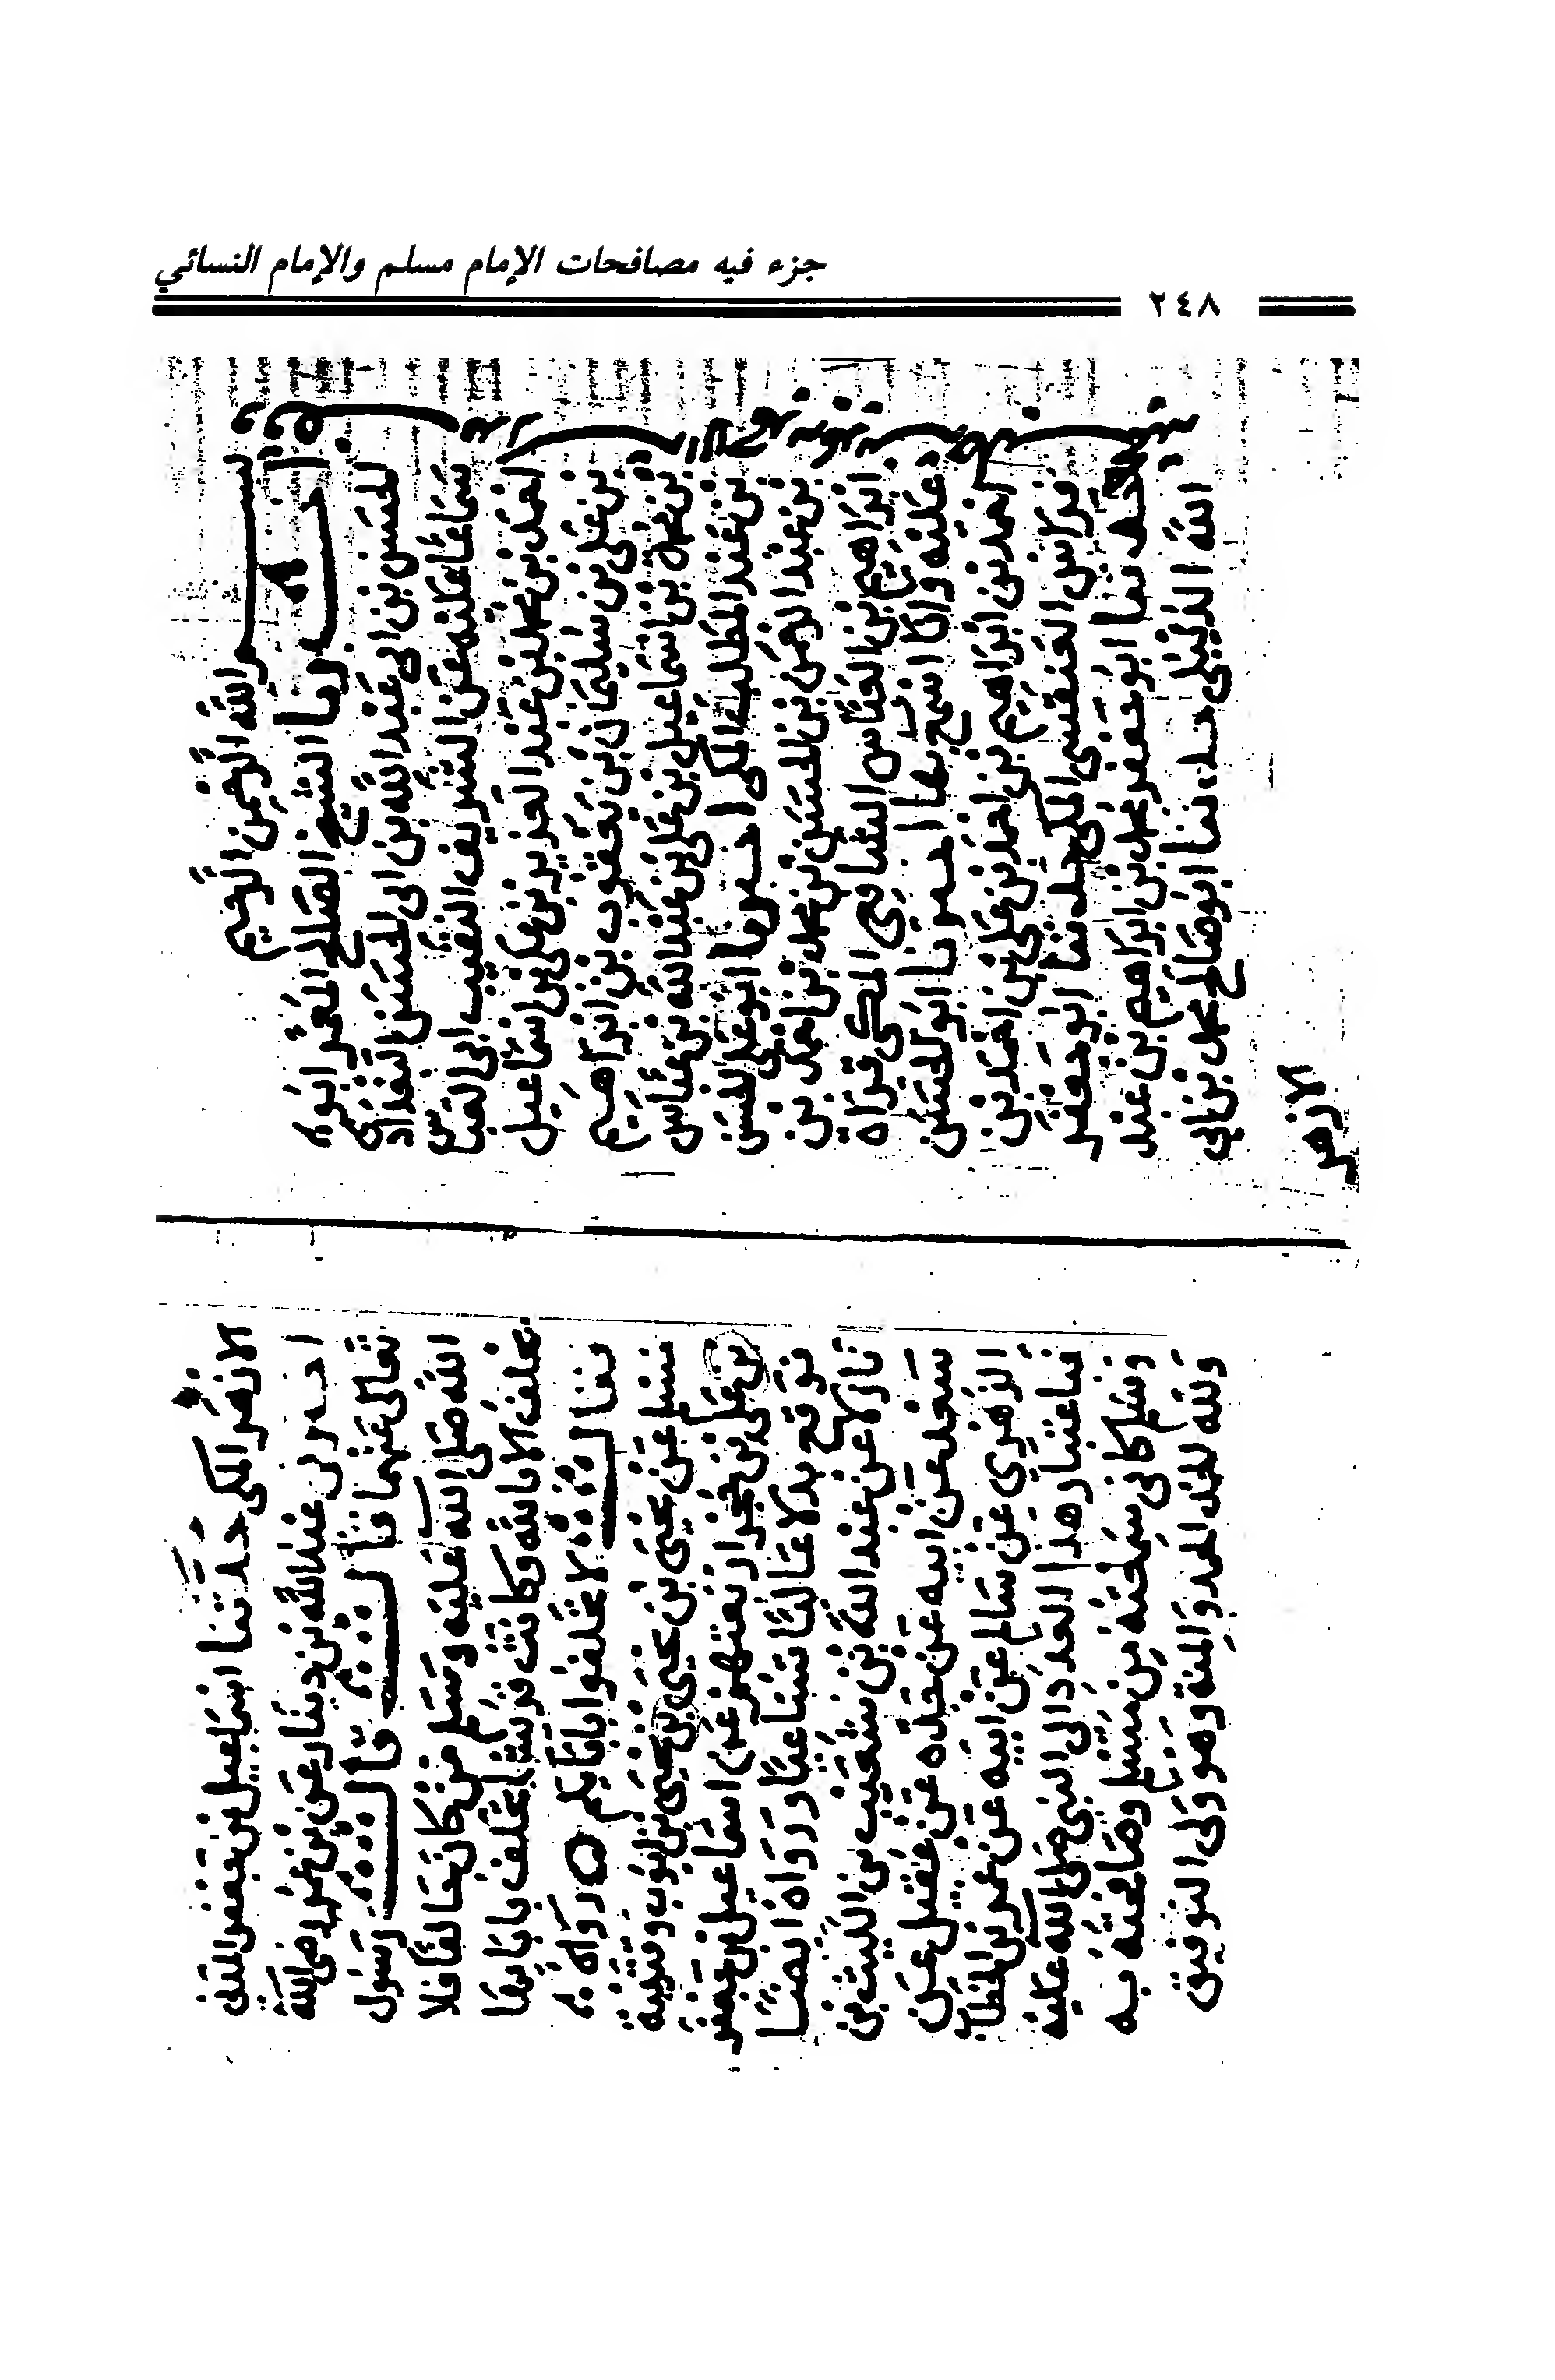 جزء فيه مصافحات الإمام مسلم والإمام النسائي
٢٤٨
بسم الله الرحمن الرحيم
اخبرنا الشيخ الصالح المعمر ابو
الحسن بن ابي عبد الله بن ابي الحسن البغدادي
سماعا عليه عن الشريف النقيب ابي العباس
احمد بن محمد بن عبد العزيز بن علي بن اسماعيل
بن علي بن سليمان بن يعقوب بن ابراهيم
بن محمد بن اسماعيل بن علي بن عبد الله بن عباس
بن عبد المطلب المكي اخبرنا ابو علي الحسن
بن عبد الرحمن بن الحسن بن محمد بن احمد بن
ابراهيم بن العباس الشافعي المكي قراة
عليه وانا اسمع بها اخبرنا ابو الحسن
احمد بن ابراهيم بن احمد بن علي بن احمد بن
فراس العبقسي المكي حدثنا ابو جعفر
محمد بن ابراهيم بن عبد
الله الديبلي حدثنا ابو صالح محمد بن ابي
الازهر
الازهر المكي حدثنا اسماعيل بن جعفر المدني
اخبرني عبد الله بن دينار عن بن عمر رضي الله
تعالى عنهما قال قال رسول
الله صلى الله عليه وسلم من كان حالفا فلا
يحلف الا بالله وكانت قريش تحلف بابايها
فقال لا تحلفوا بابايكم رواه
مسلم عن يحيى بن يحيى بن ايوب وقتيبة
بن علي بن حجر اربعتهم عن اسماعيل بن جعفر
توقع بدلا عاليا تساعيا ورواه ايضا
نازلا عن عبد الله بن شعيب بن الليث بن
سعد عن ابيه عن جده عن عقيل عن
الزهري عن سالم عن ابيه عن عمر بن الخطاب
فباعتبار هذا العدد الى النبي صلى الله عليه
وسلم كاني سمعته من مسلم وصافحته به
ولله الحمد والمنة وهو ولي التوفيق